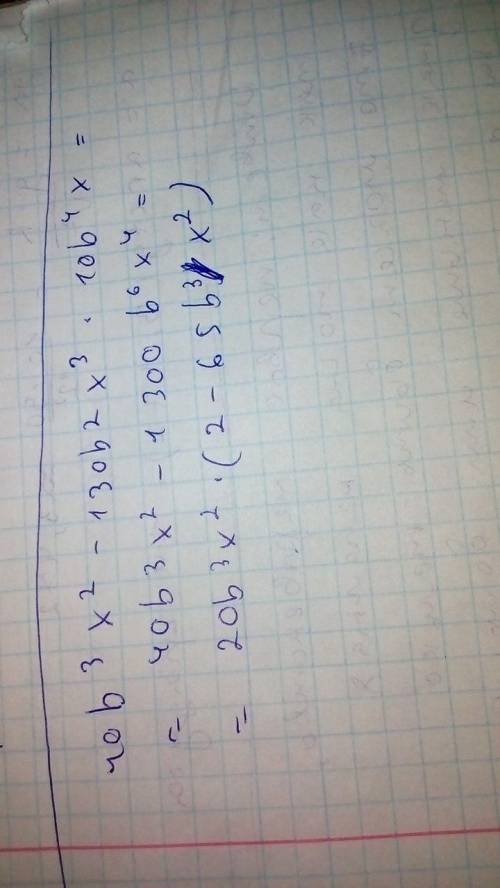 40b³x² - 130b2x³ · 10b⁴x =
= 40b³x² - 1 300 b⁶x⁴ =
= 20b³x² · (2 - 65b³x²)